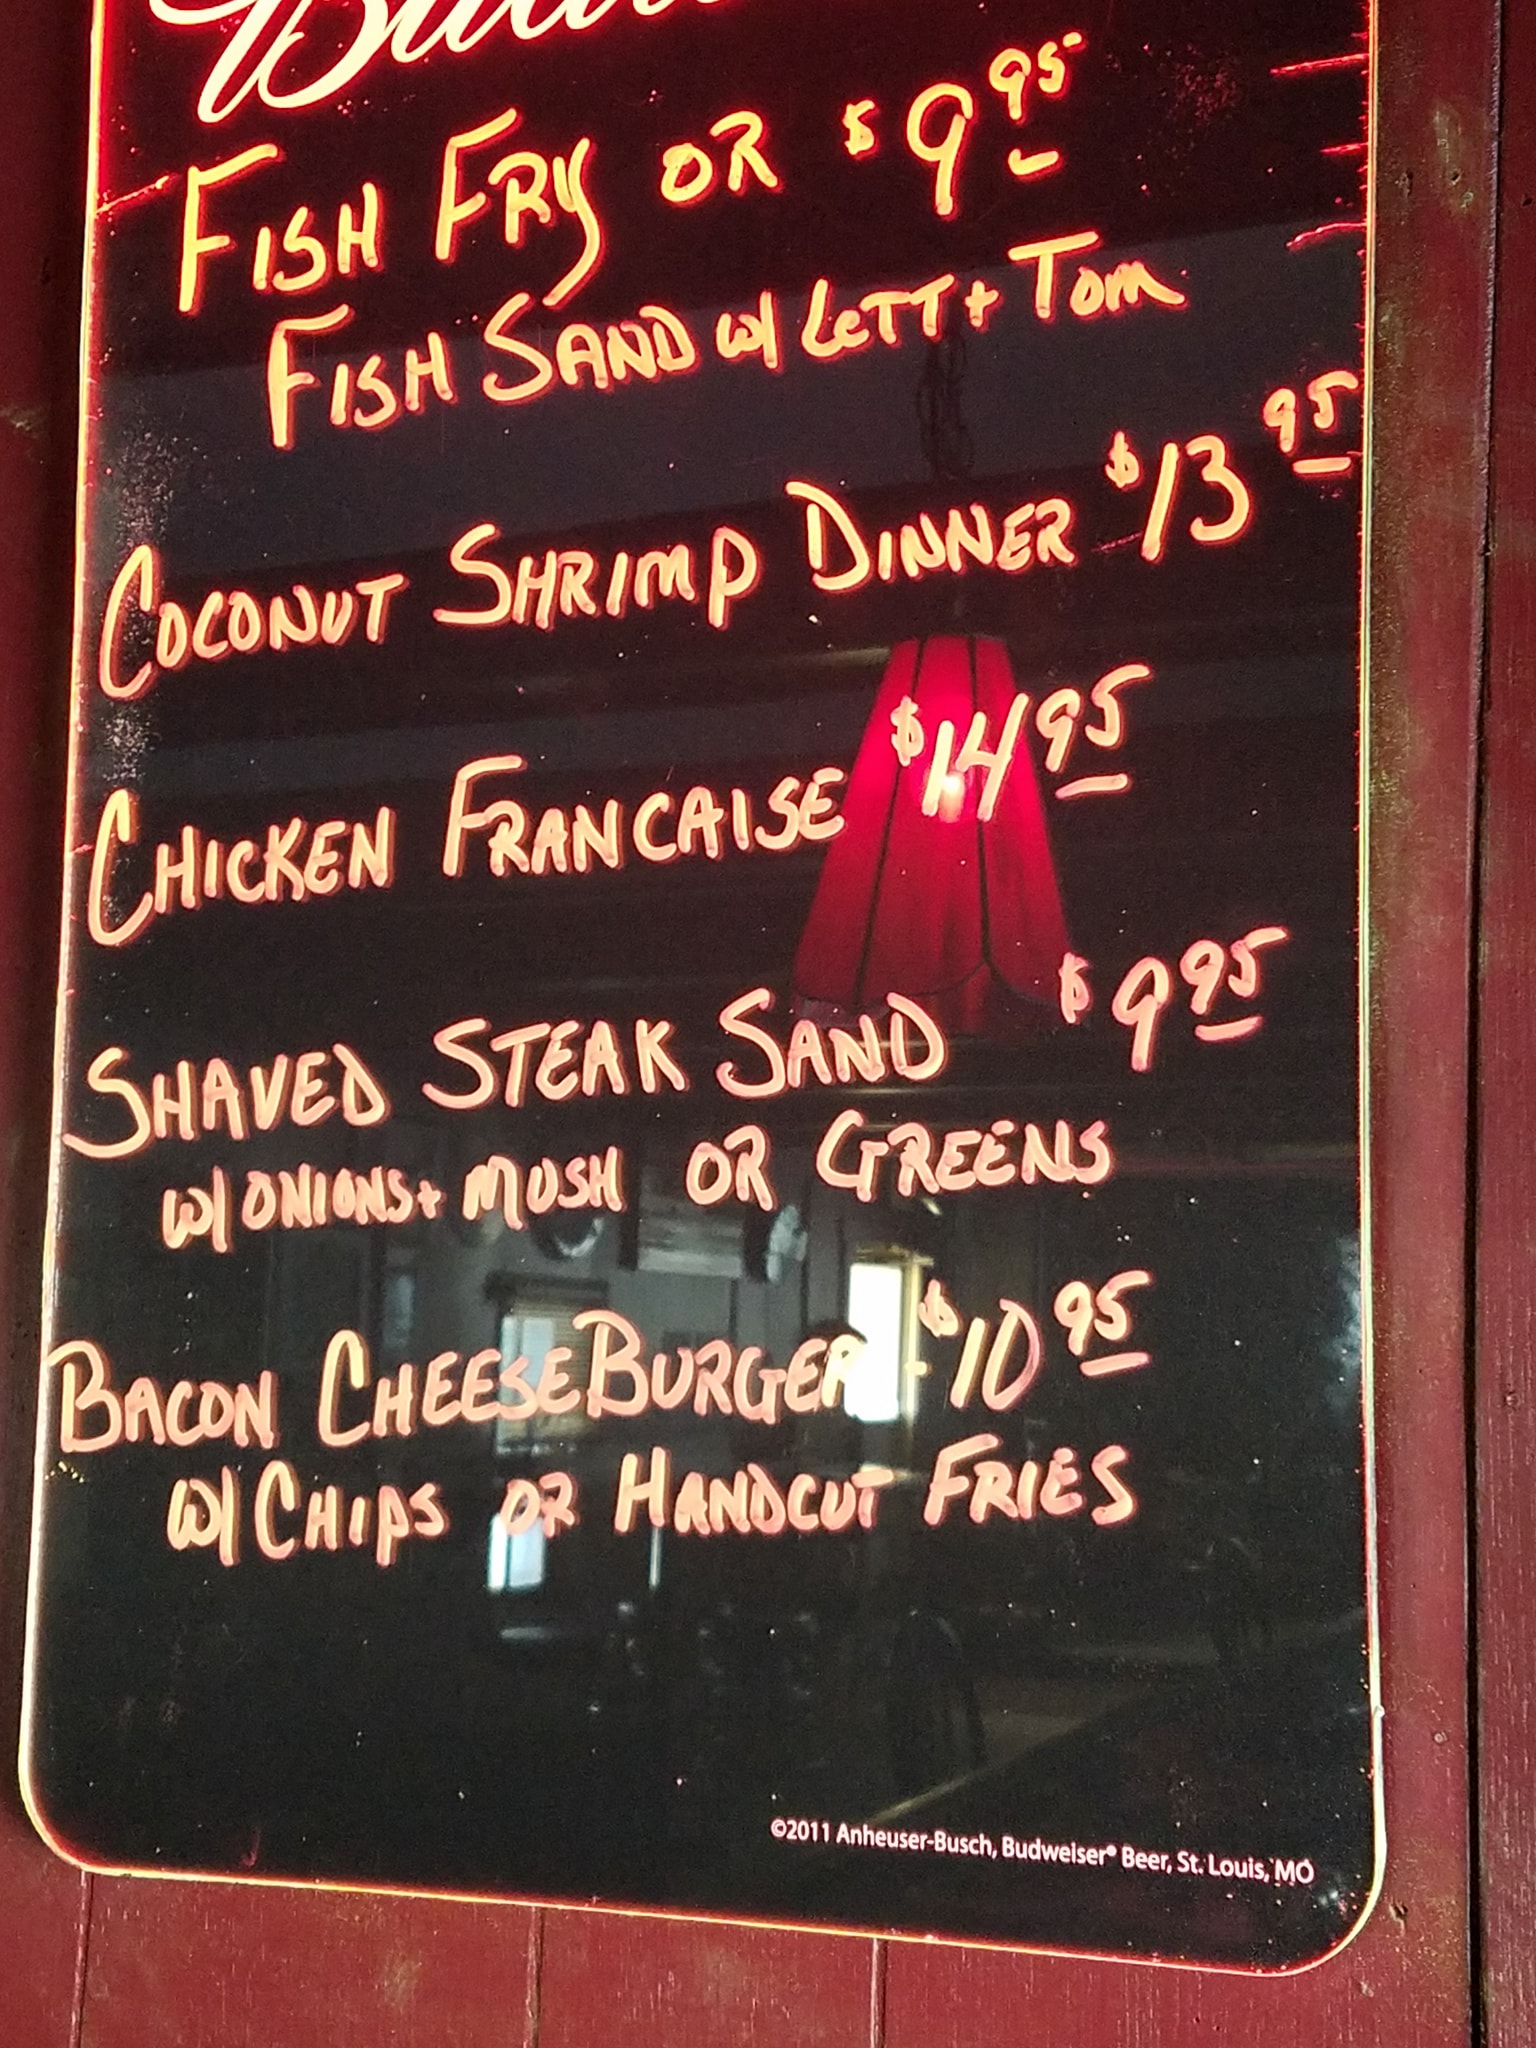 FISH FRY OR $9.95
FISH SAND w/ LETT + TOM
COCONUT SHRIMP DINNER $13.95
CHICKEN FRANCAISE $14.95
SHAVED STEAK SAND $9.95
w/ ONIONS + MUSH OR GREENS
BACON CHEESEBURGER $10.95
w/ CHIPS OR HANDCUT FRIES
©2011 Anheuser-Busch, Budweiser® Beer, St. Louis, MO